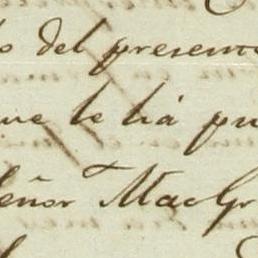 o del presente
ue le há pu
Señor MacGr